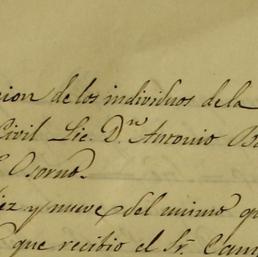 cion de los individuos de la
Civil Lic. D.n Antonio
Osorno.
diez y nueve del mismo
que recibio el Sr.